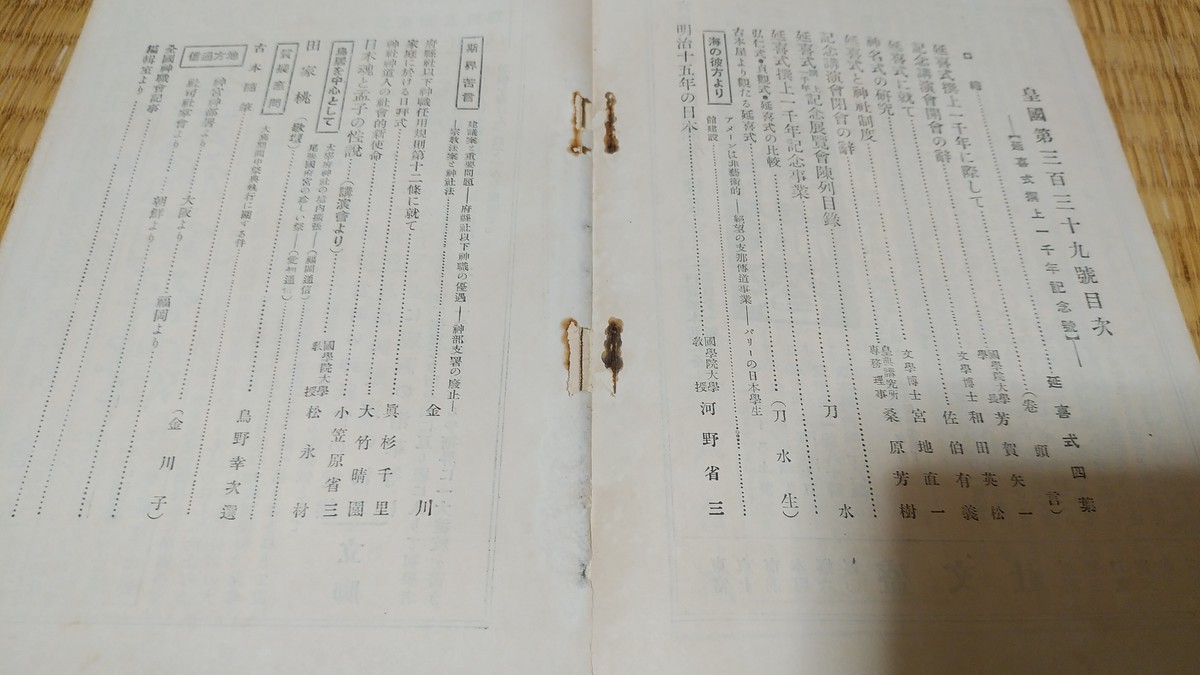 皇國第三百三十九號目次
―【延喜式撰上一千年記念號】―
延喜式四葉
延喜式撰上一千年に際して……(卷頭言)
記念講演會開會の辭……國學院大學長 芳賀矢一
延喜式に就て……文學博士 和田英松
神名式の研究……佐伯有義
延喜式と神社制度……文學博士 宮地直一
記念講演會閉會の辭……皇典講究所專務理事 桑原芳樹
延喜式撰上一千年記念展覽會陳列目錄
延喜式撰上一千年記念事業……刀水
弘仁式・貞觀式・延喜式の比較
古本屋より觀たる延喜式……(刀水生)
海の彼方より
アメーンは非藝術的――絕望の支那傳道事業――パリーの日本學生
館建設
明治十五年の日本……國學院大學敎授 河野省三
斯界苦言
建議案と重要問題――府縣社以下神職の優遇――神部支署の廢止―
―宗敎法案と神社法
府縣社以下神職任用規則第十二條に就て……金川
家庭に於ける日拜式……眞杉千里
神社神道人の社會的新使命……大竹晴園
日本魂と孟子の性說……(講演會より)……小笠原省三
鳥居を中心として
太宰府神社の境內擴張――(福岡通信)
尾張國府宮の珍しい祭――(愛知通信)
田家桃(歌壇)……國學院大學敎授 松永材
質疑應問
大喪期間中祭典執行に關する件
古本隨筆……鳥野幸次選
地方通信
神宮神部署より
社司社掌會より……大阪より……福岡より
全國神職會記事……朝鮮より
編輯室より……(金川子)